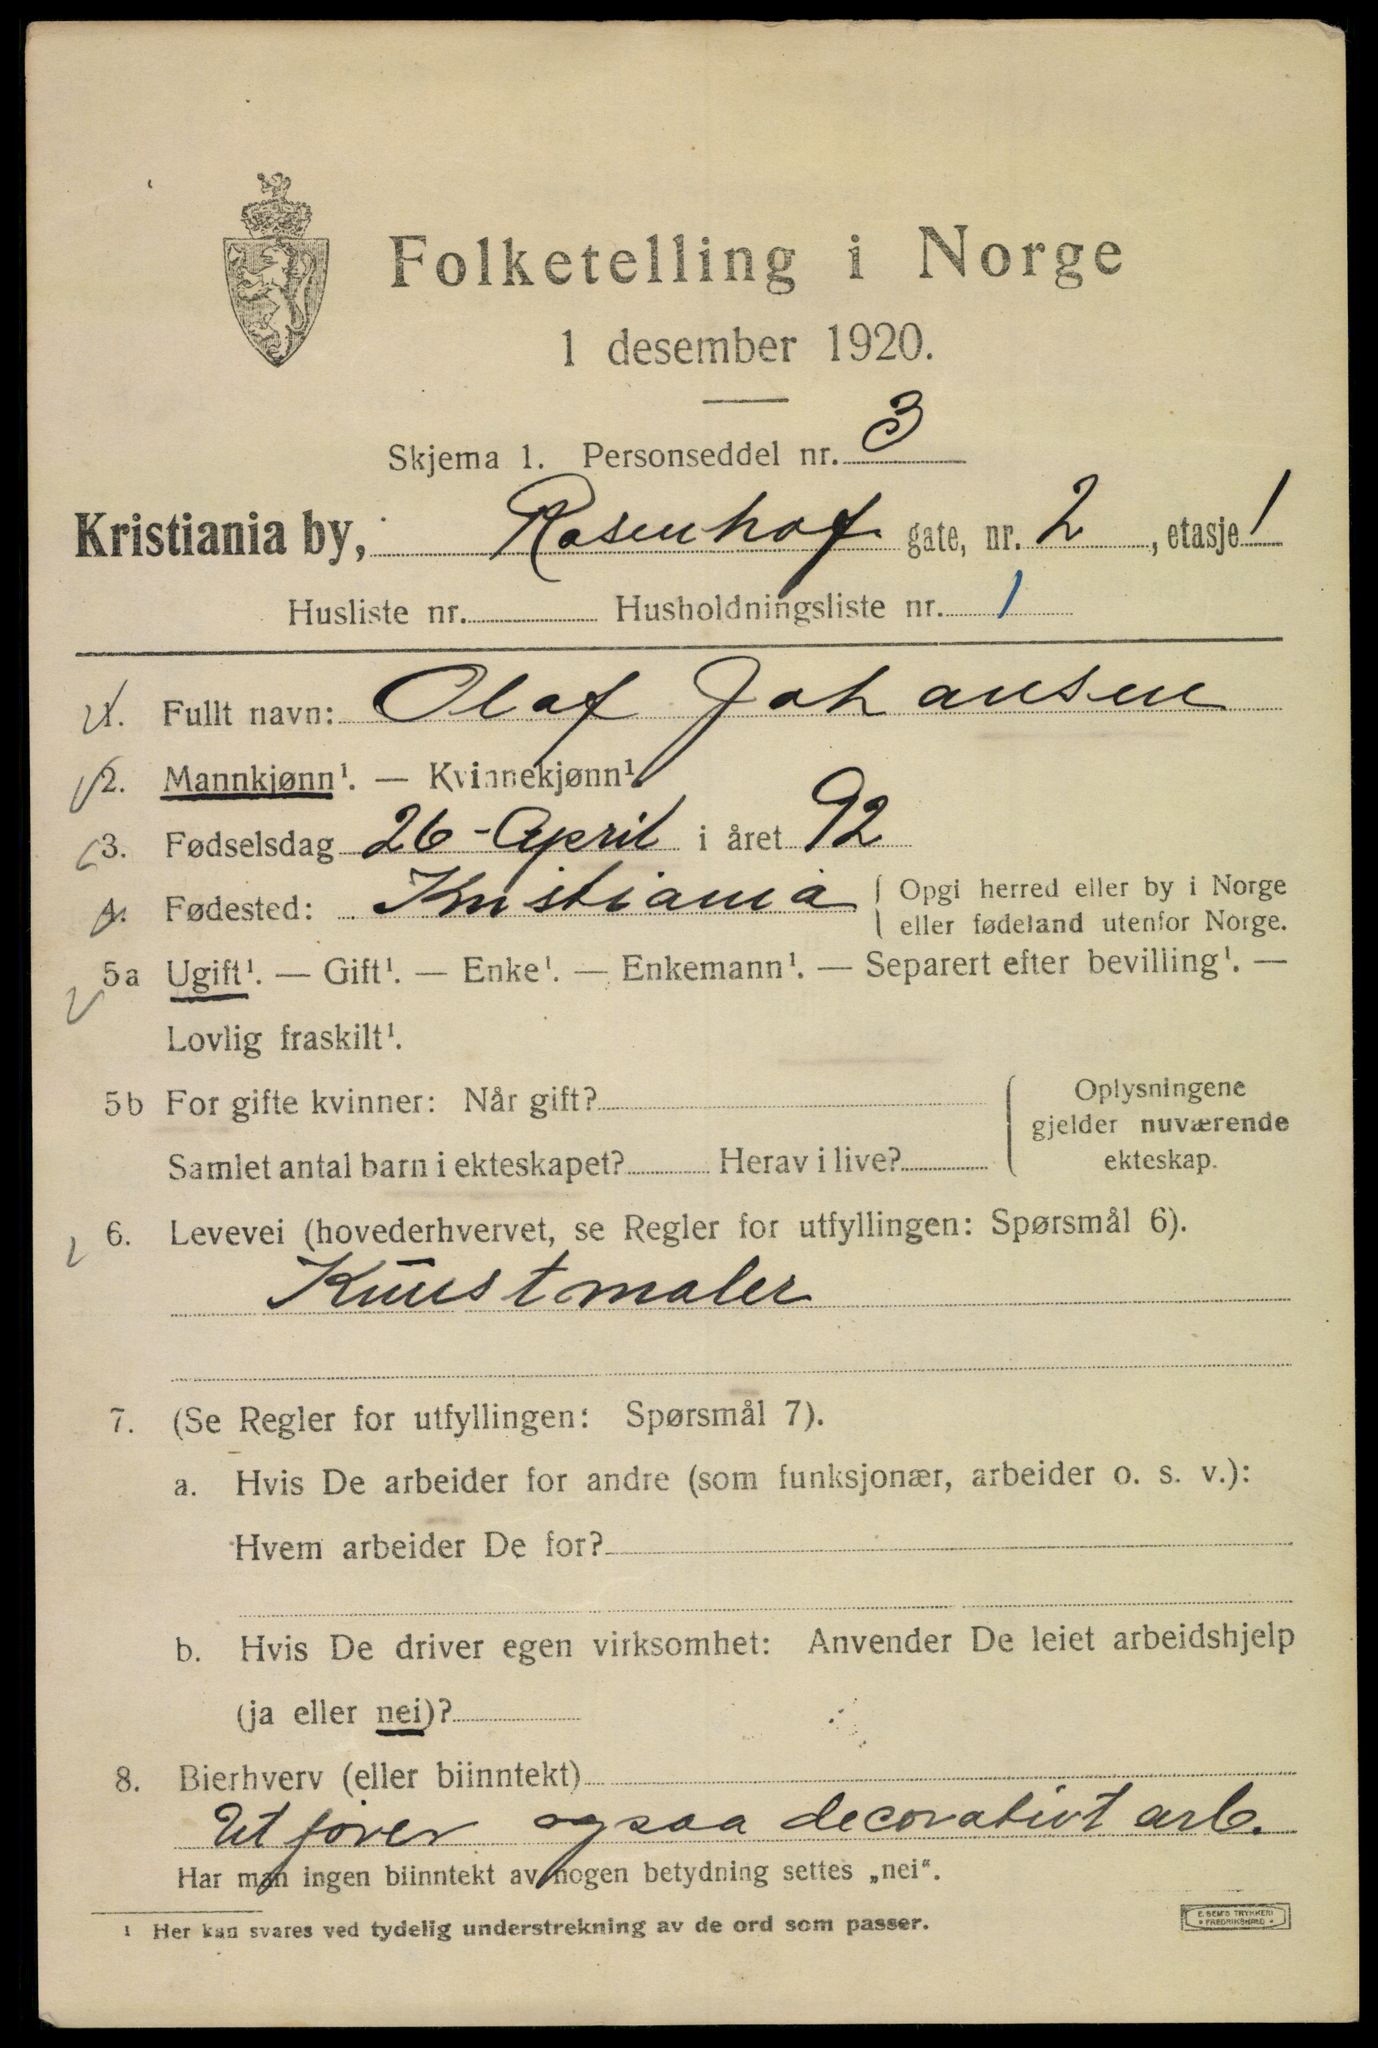 Folketelling i Norge
1 desember 1920.
Skjema 1. Personseddel nr. 3
Kristiania by, Rosenhof gate, nr. 2, etasje 1
Husliste nr. Husholdningsliste nr. 1
1. Fullt navn: Olaf Johansen
2. Mannkjønn¹. — Kvinnekjønn¹.
3. Fødselsdag 26 - April i året 92
4. Fødested: Kristiania { Opgi herred eller by i Norge
eller fødeland utenfor Norge.
5a Ugift¹. — Gift¹. — Enke¹. — Enkemann¹. — Separert efter bevilling¹. —
Lovlig fraskilt¹.
5b For gifte kvinner: Når gift? Oplysningene
gjelder nuværende
Samlet antal barn i ekteskapet? Herav i live? ekteskap.
6. Levevei (hovederhvervet, se Regler for utfyllingen: Spørsmål 6).
Kunstmaler
7. (Se Regler for utfyllingen: Spørsmål 7).
a. Hvis De arbeider for andre (som funksjonær, arbeider o. s. v.):
Hvem arbeider De for?
b. Hvis De driver egen virksomhet: Anvender De leiet arbeidshjelp
(ja eller nei)?
8. Bierhverv (eller biinntekt)
Utfører ogsaa decorativt arb.
Har man ingen biinntekt av nogen betydning settes „nei“.
¹ Her kan svares ved tydelig understrekning av de ord som passer.
E. SEM'S TRYKKERI
FREDRIKSHALD